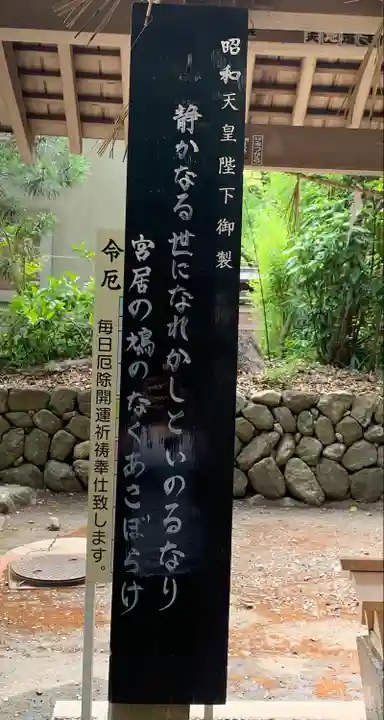 昭和天皇陛下御製
静かなる世になれかしといのるなり
宮居の鳩のなくあさぼらけ
令厄
毎日厄除開運祈祷奉仕致します。